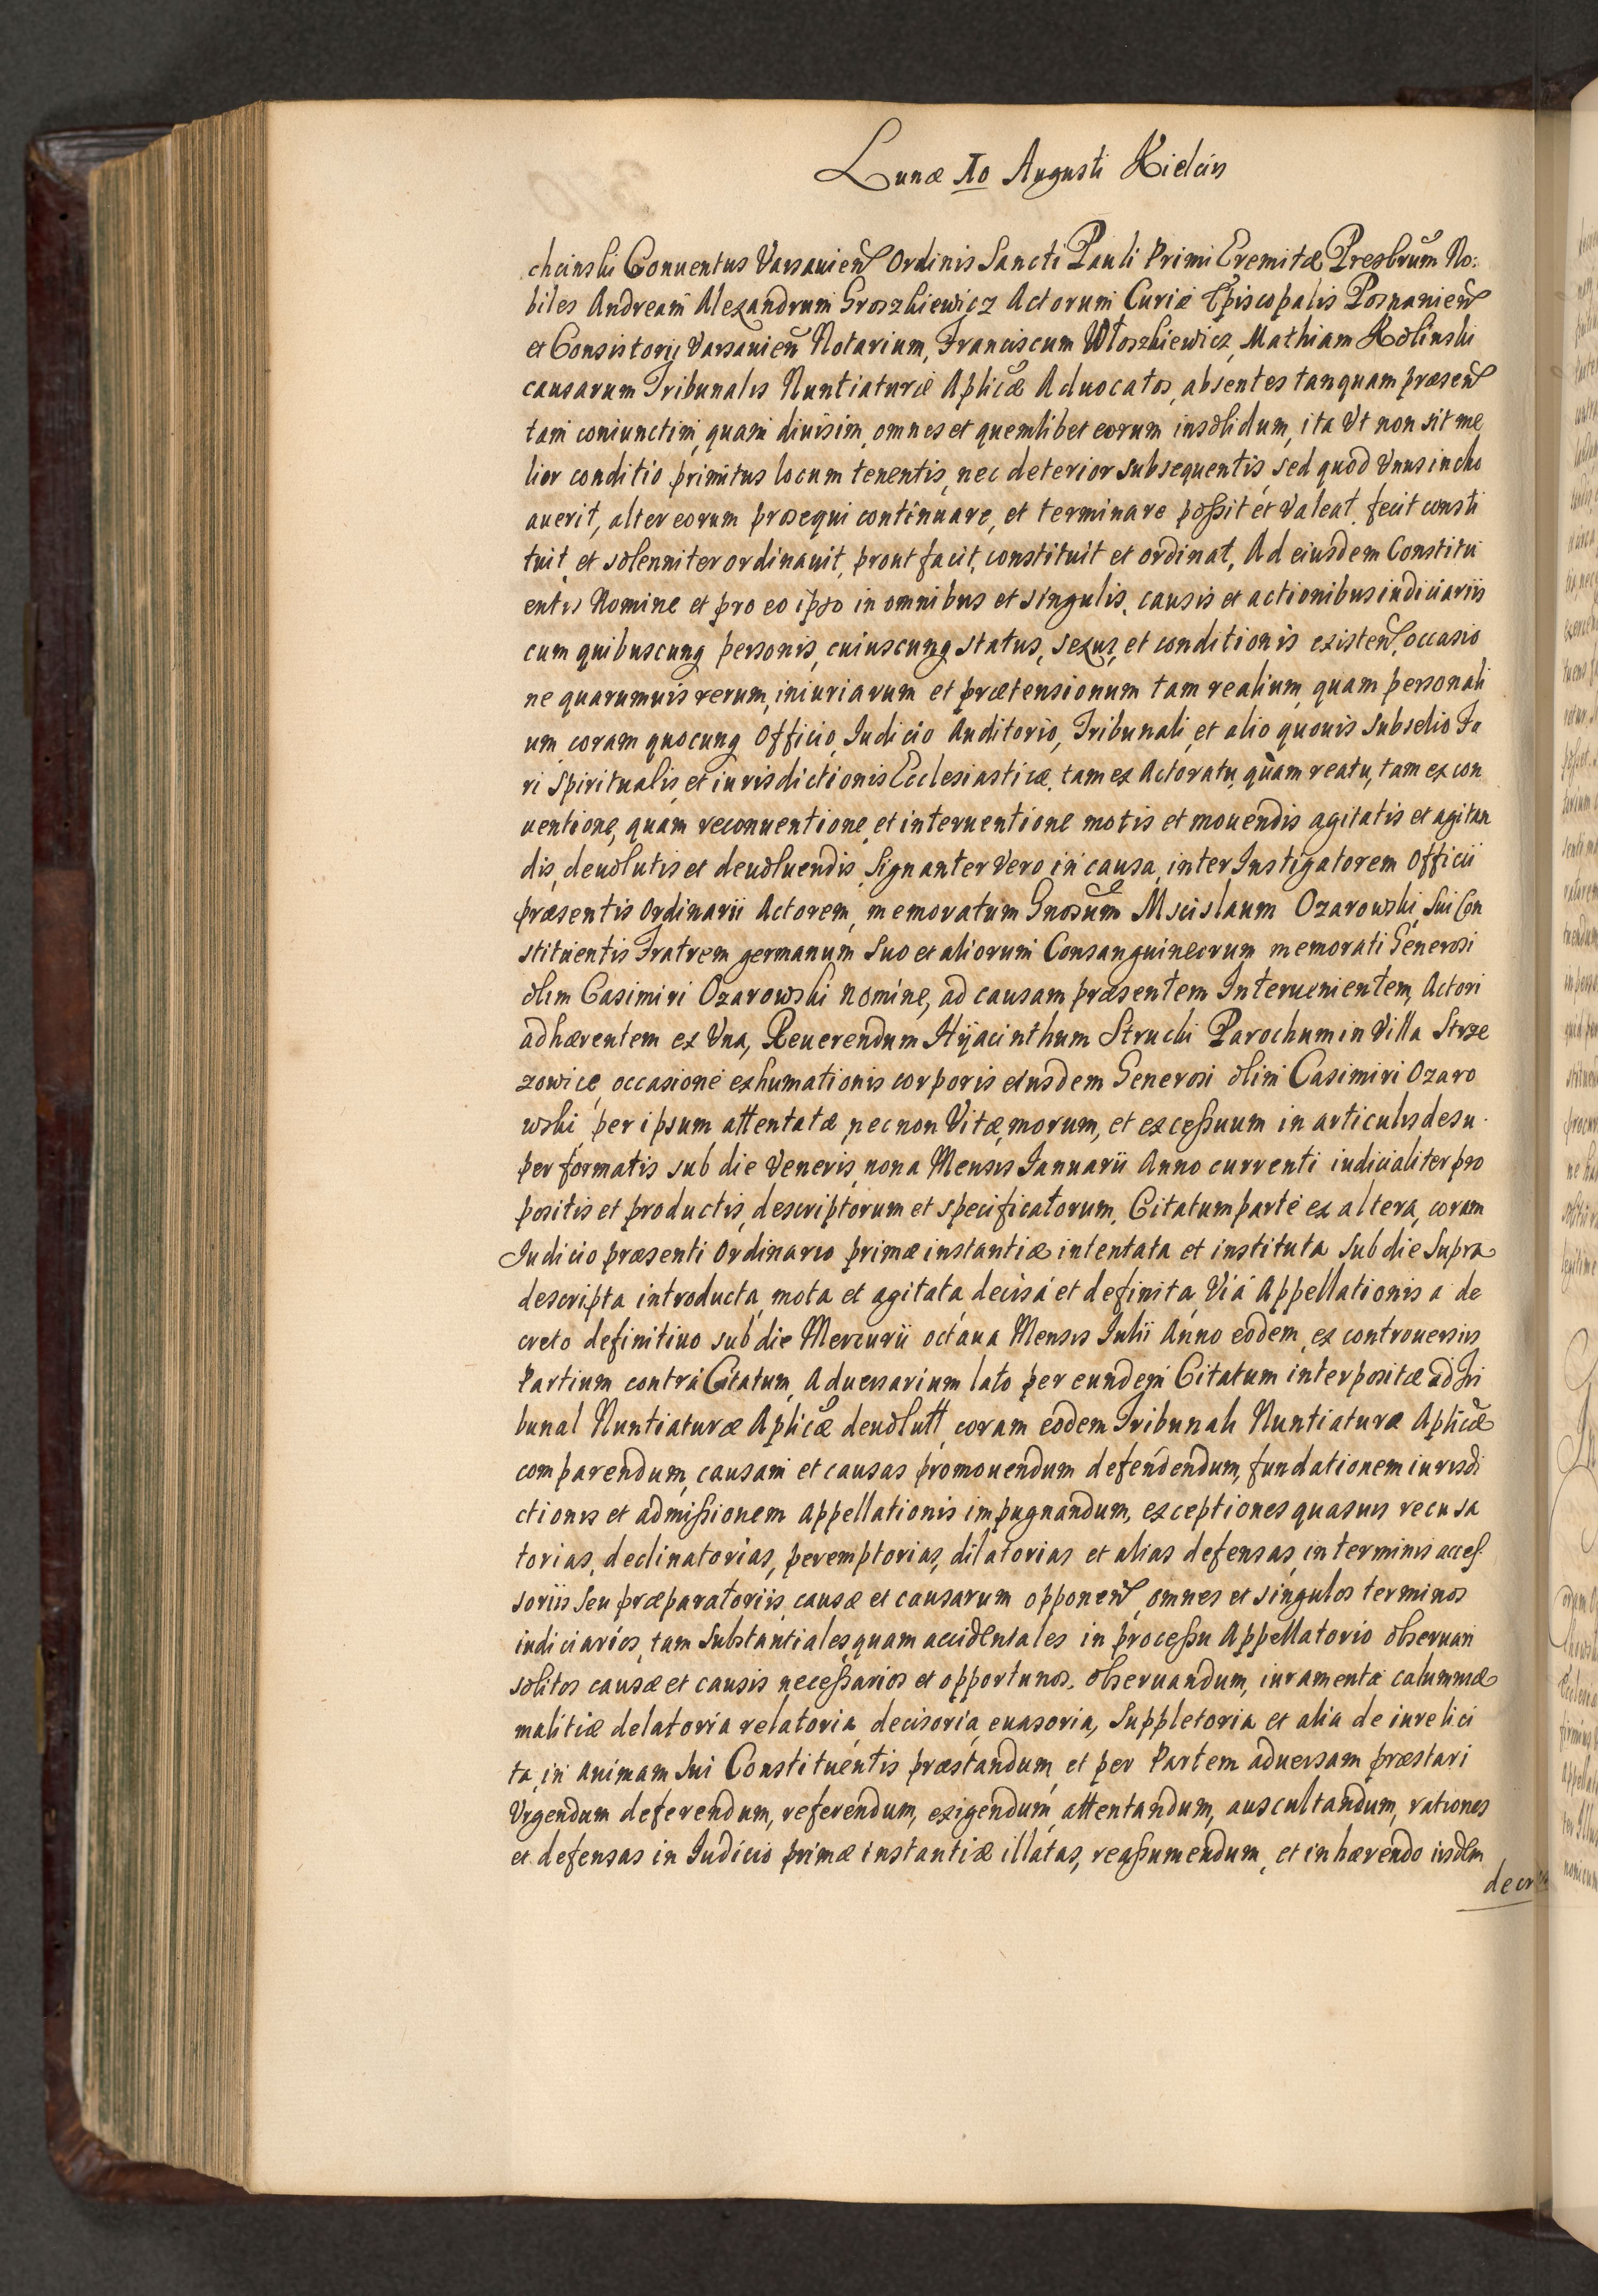 Lunæ 10 Augusti Kielcis
chcinski Conuentus Varsauien Ordinis Sancti Pauli Primi Eremitæ Presbrum No:
biles Andream Alexandrum Groszkiewicz Actorum Curiæ Episcopalis Posnanien
et Consistorij Varsauien Notarium, Franciscum Włoszkiewicz, Mathiam Rolinski
causarum Tribunalis Nuntiaturæ Aplicæ Aduocatos, absentes tanquam præsen
tam coniunctim, quam diuisim, omnes et quemlibet eorum insolidum, ita Vt non sit me
lior conditio primitus locum tenentis, nec deterior subsequentis, sed quod Vnus incho
auerit, alter eorum prosequi continuare, et terminare possit et Valeat, fecit consti
tuit, et solenniter ordinauit, prout facit, constituit et ordinat, Ad eiusdem Constitu
entis Nomine et pro eo ipso in omnibus et singulis, causis et actionibus iudiciariis
cum quibuscunq personis, cuiuscunq status, sexus, et conditionis existen, occasio
ne quarumuis rerum, iniuriarum et prætensionum tam realium, quam personali
um, coram quocunq Officio, Iudicio Auditorio, Tribunali, et alio quouis Subselio Fo
ri Spiritualis, et iurisdictionis Ecclesiasticæ, tam ex Actoratu, quam reatu, tam ex con
uentione, quam reconuentione, et interuentione motis et mouendis agitatis et agitan
dis, deuolutis et deuoluendis, Signanter Vero in causa, inter Instigatorem Officii
præsentis Ordinarii Actorem, memoratum Gnosum Mscislaum Ozarowski, Sui Con
stituentis Fratrem germanum, Suo et aliorum Consanguineorum memorati Generosi
olim Casimiri Ozarowski nomine, ad causam præsentem Interuenientem, Actori
adhærentem ex Vna, Reuerendum Hyacinthum Strucki Parochum in Villa Strze
zowice, occasione exhumationis corporis eiusdem Generosi olim Casimiri Ozaro
wski, per ipsum attentatæ, necnon Vitæ, morum, et excessuum in articulis desu
per formatis sub die Veneris, nona Mensis Ianuarii Anno currenti iudicialiter pro
positis et productis, descriptorum et specificatorum, Citatum parte ex altera, coram
Iudicio præsenti Ordinario primæ instantiæ intentata et instituta, sub die Supra
descripta introducta, mota et agitata, decisa et definita, Via Appellationis a de
creto definitiuo sub die Mercurii octaua Mensis Iulii Anno eodem, ex controuersiis
Partium contra Citatum, Aduersarium lato per eundem Citatum interpositæ ad Tri
bunal Nuntiaturæ Aplicæ deuolutt, coram eodem Tribunali Nuntiaturæ Aplicæ
comparendum, causam et causas promouendum defendendum, fundationem iurisdi
ctionis et admissionem appellationis impugnandum, exceptiones quasuis recusa
torias, declinatorias, peremptorias, dilatorias et alias defensas, in terminis acces
soriis seu præparatoriis, causæ et causarum opponen, omnes et singulos terminos
iudiciarios, tam substantiales, quam accidentales in processu Appellatorio obseruari
solitos causæ et causis necessarios et opportunos, obseruandum, iuramenta calumniæ
malitiæ delatoria relatoria, decisoria, euasoria, Suppletoria et alia de iure lici
ta, in Animam Sui Constituentis præstandum, et per Partem aduersam præstari
Vrgendum deferendum, referendum, exigendum, attentandum, auscultandum, rationes
et defensas in Iudicio primæ instantiæ illatas, reassumendum, et inhærendo iisdem